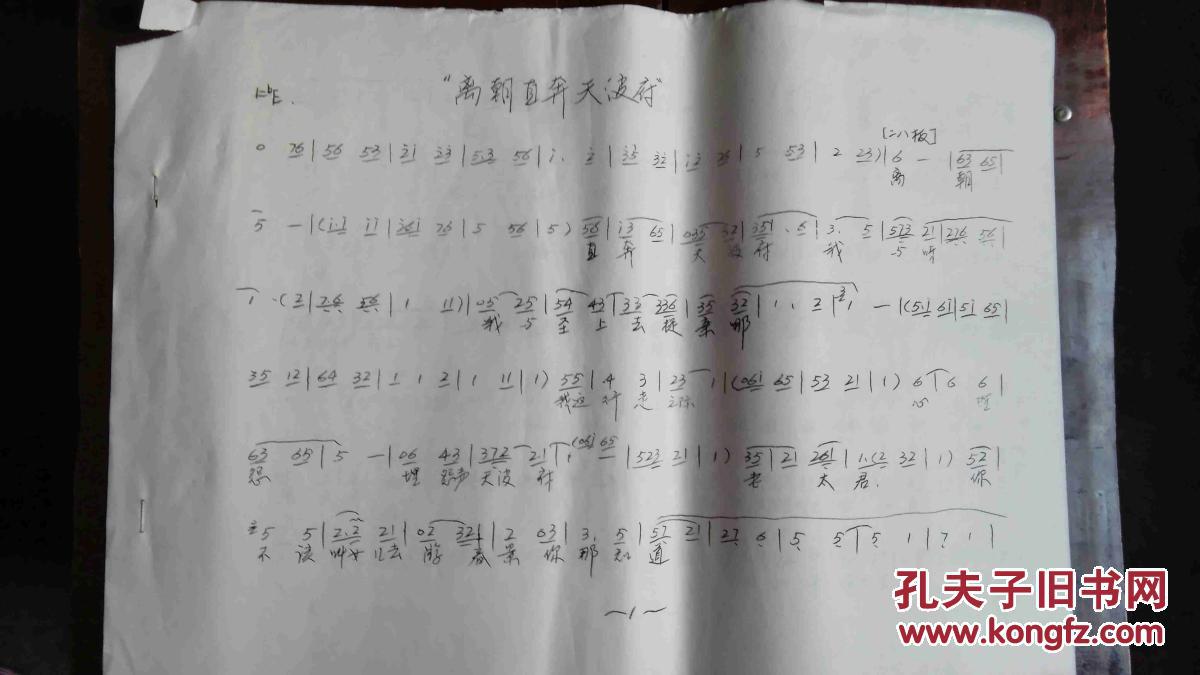 1=♭E.
"离朝直奔天波府"
[二八板]
0 76 | 56 53 | 21 23 | 5.3 56 | 1. 2 | 35 32 | 12 76 | 5 53 | 2 23) | 6 - | 63 65 |
离 朝
5 - | (1.1 11 | 361 76 | 5 56 | 5) 56 | 13 65 | 035 32 | 351 . 6 | 3. 5 | 573 21 | 276 56 |
直 奔 天 波 府 我 与 呀
1 . (2 | 76 56 | 1 11) | 05 25 | 54 43 | 33 336 | 35 32 | 1 . 2 | 1 - | (51 61 | 51 65 |
我 与 圣 上 去 提 来 那
35 12 | 64 32 | 1 1 2 | 1 11 | 1) 55 | 4 3 | 23 1 | (061 65 | 53 21 | 1) 6 | 6 6 |
我这 心 埋
63 65 | 5 - | 06 43 | 372 21 | 1 (061 65 - | 523 21 | 1) 35 | 21 261 | 1.(2 32 | 1) 52 |
怨 埋 怨声 天波 府 老 太 君. 你
5 5 | 2.2 21 | 02 321 | 2 03 | 3. 5 | 57 21 | 27 6 | 5 5 | 5 1 | 7 1 |
不 该 叫 去 游 春 景 你 那 知 道
~1~
孔夫子旧书网
www.kongfz.com